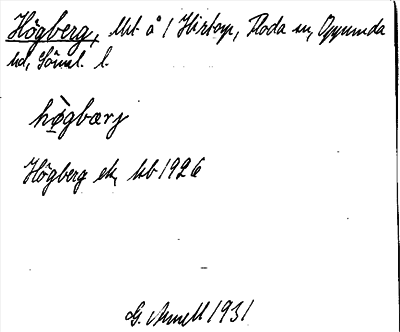 Högberg, lht å 1 Hirtorp, Floda sn, Oppunda
hd, Söml. l.
hògbærj
Högberg ek, kb 1926
G. Arnell 1931